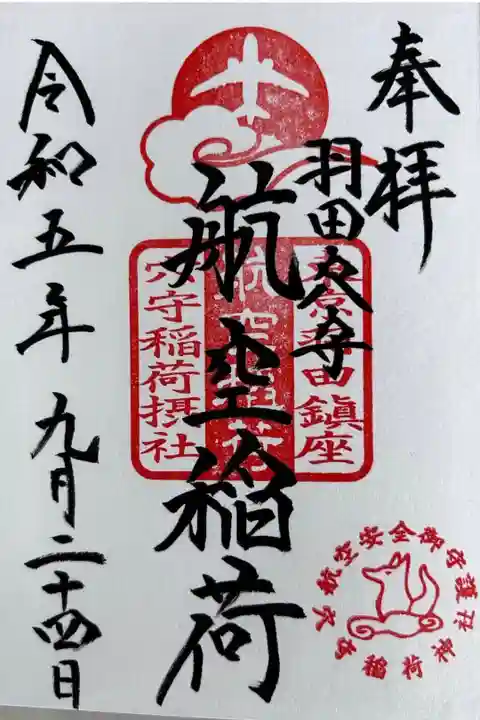 奉拝
羽田穴守
航空稲荷
令和五年九月二十四日
東京羽田鎮座
航空稲荷
穴守稲荷摂社
航空安全御守護社
穴守稲荷神